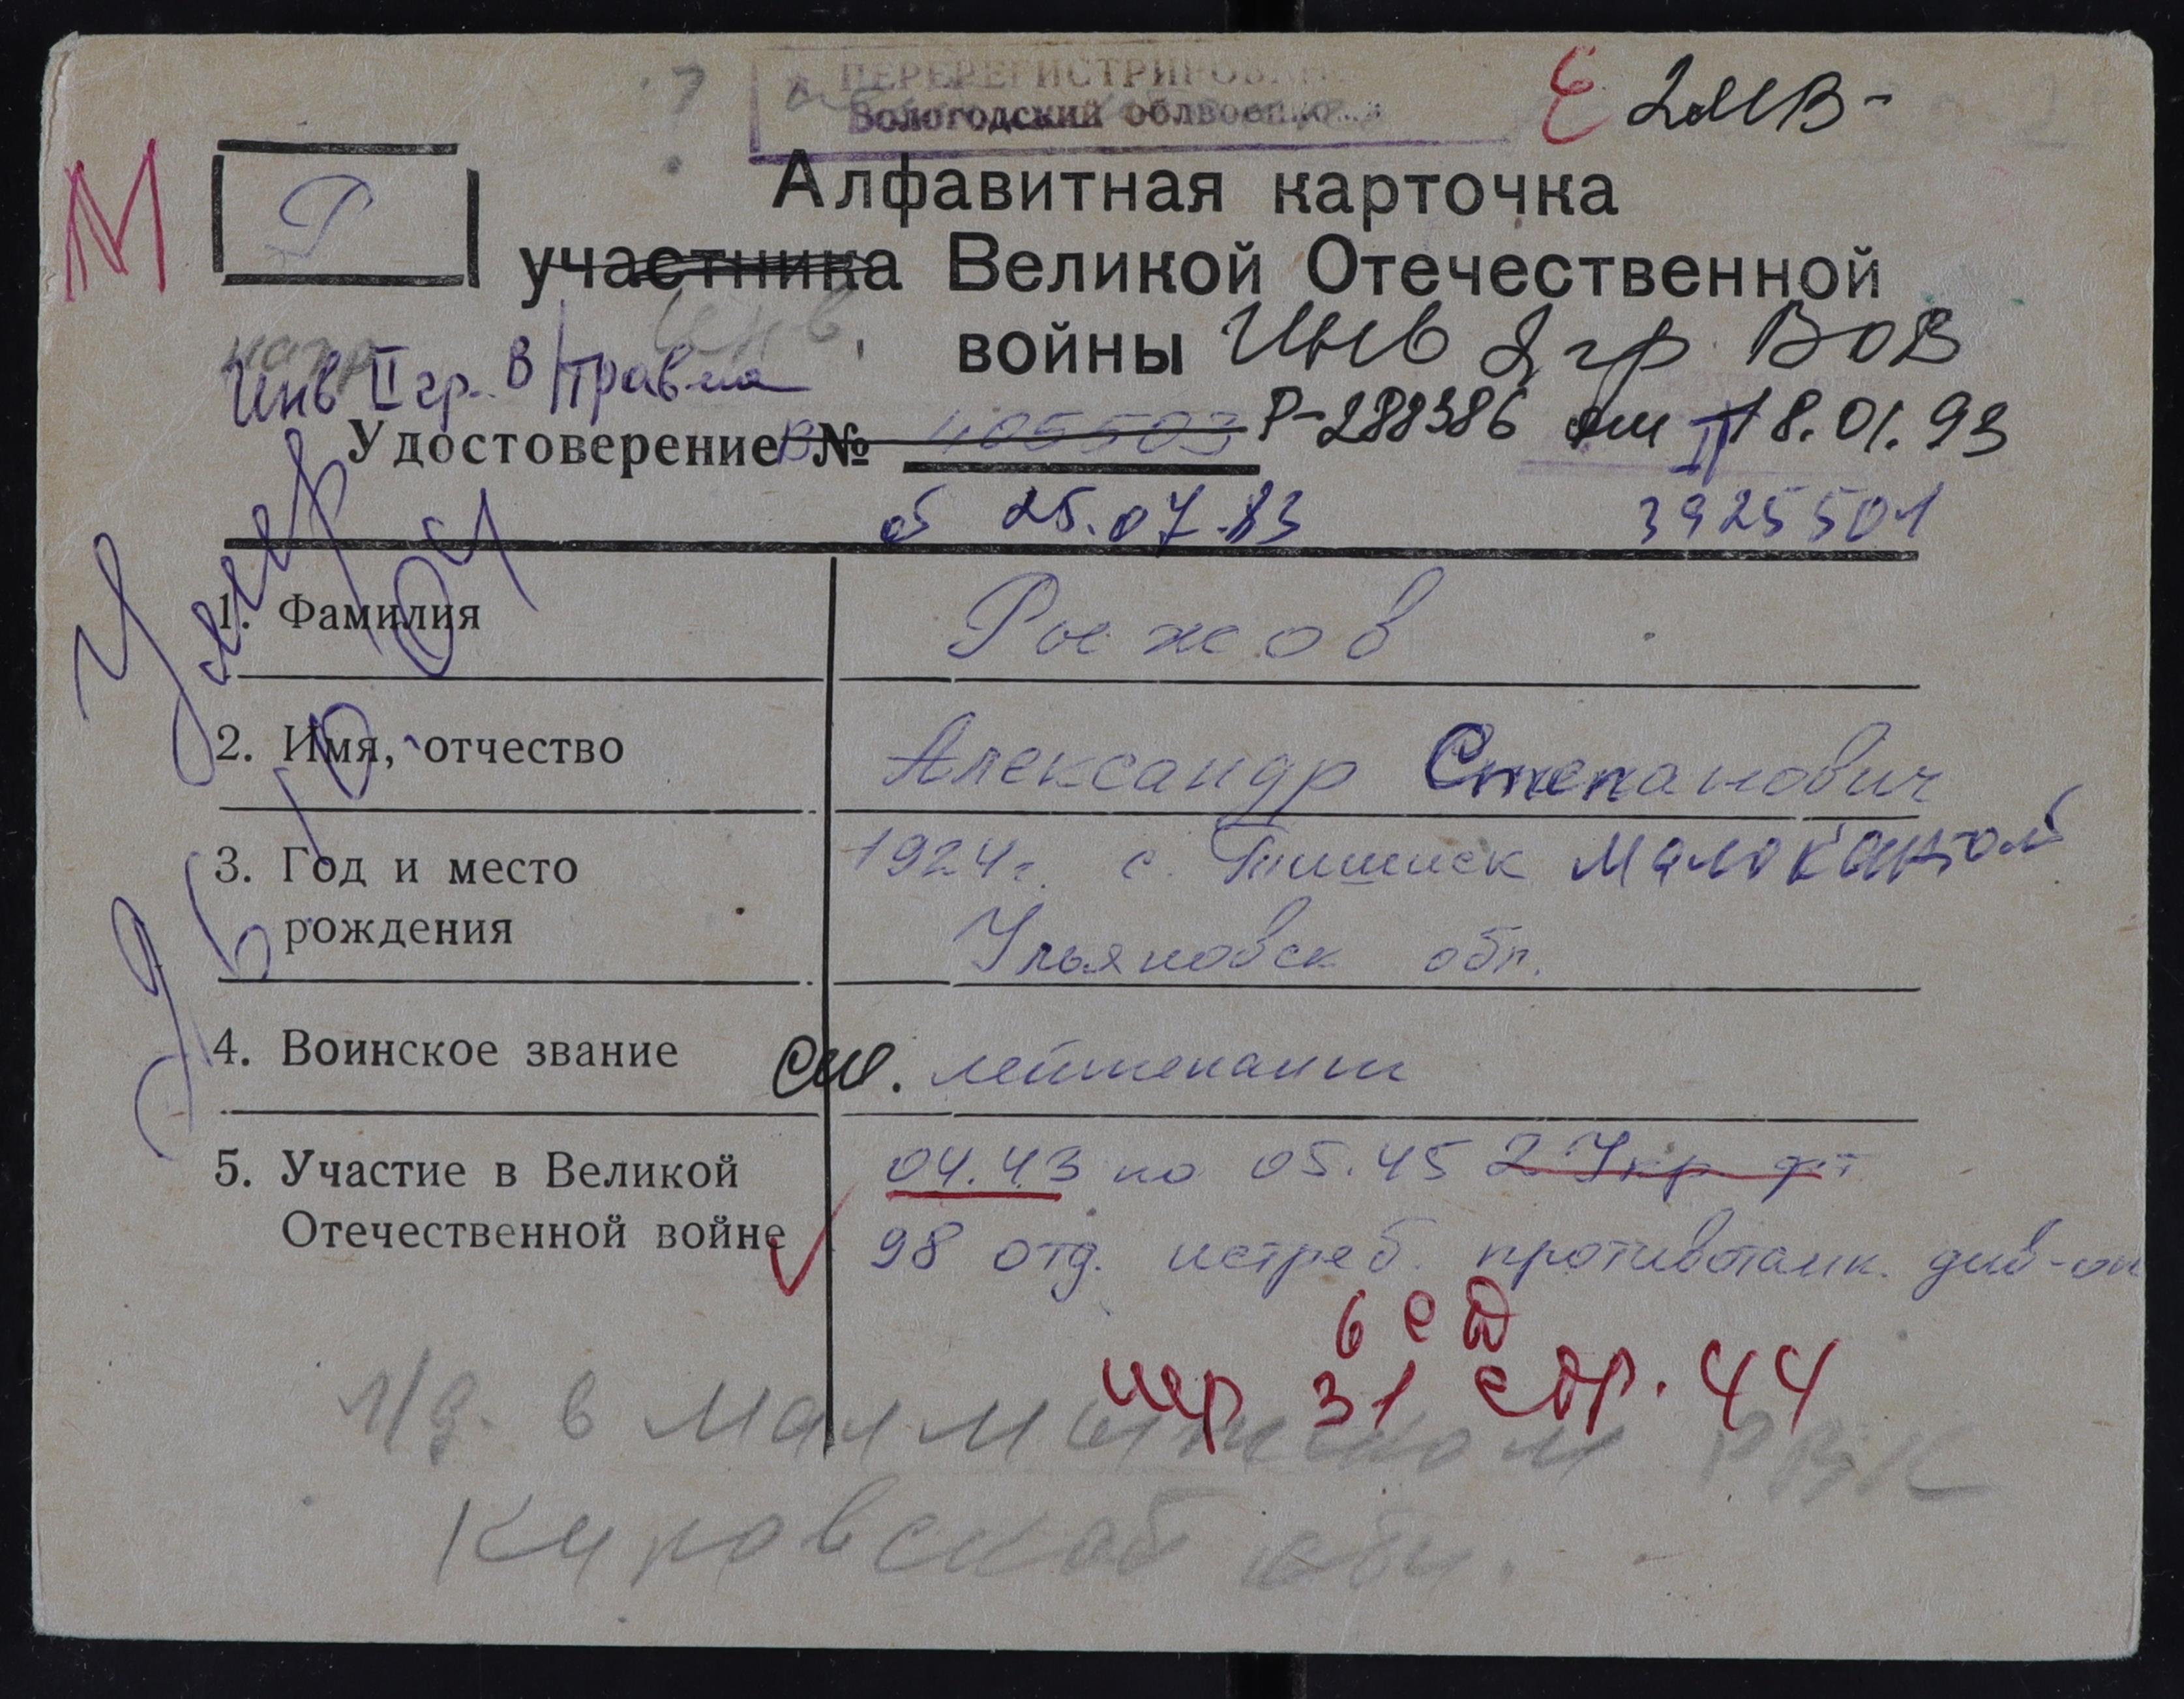 ПЕРЕРЕГИСТРИРОВАН
Вологодский облвоенко
Е 2 МВ-
М
Р
Алфавитная карточка
участника Великой Отечественной
инв
войны Инв 2 гр. ВОВ
Инв II гр. В/травма
Удостоверение В № 405503 Р-288386 от 18.01.93
об 25.07.83 3925501
Умер
1. Фамилия Рыжов
2. Имя, отчество Александр Степанович
3. Год и место рождения 1924г. с.
Ульяновск обл.
4. Воинское звание ст. лейтенант
5. Участие в Великой Отечественной войне 04.43 по 05.45 2 Укр фт
98 отд. истреб. противотанк. див-он
6 СД
пер 31 стр. 44
л/д. в Малмыжском РВК
Кировской обл.